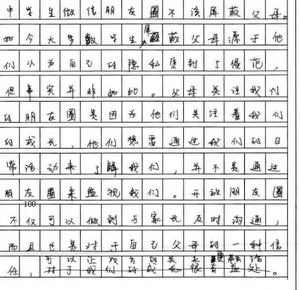 中学生做信朋友圈不该屏蔽父母。
如今大多数学生屏蔽父母源于他
们认为自己的隐私受到了侵犯，
但事实并非如此。父母关注我们
的朋友圈是因为他们关注着我们
的成长，他们想要通过我们的日
常活动来了解我们，并不是通过
朋友圈来监视我们。开放朋友圈
100
不仅可以做到与家长及时沟通，
而且也是对于自己父母的一种信
任，可以让双方的关系
对于我们的成长很有益处。